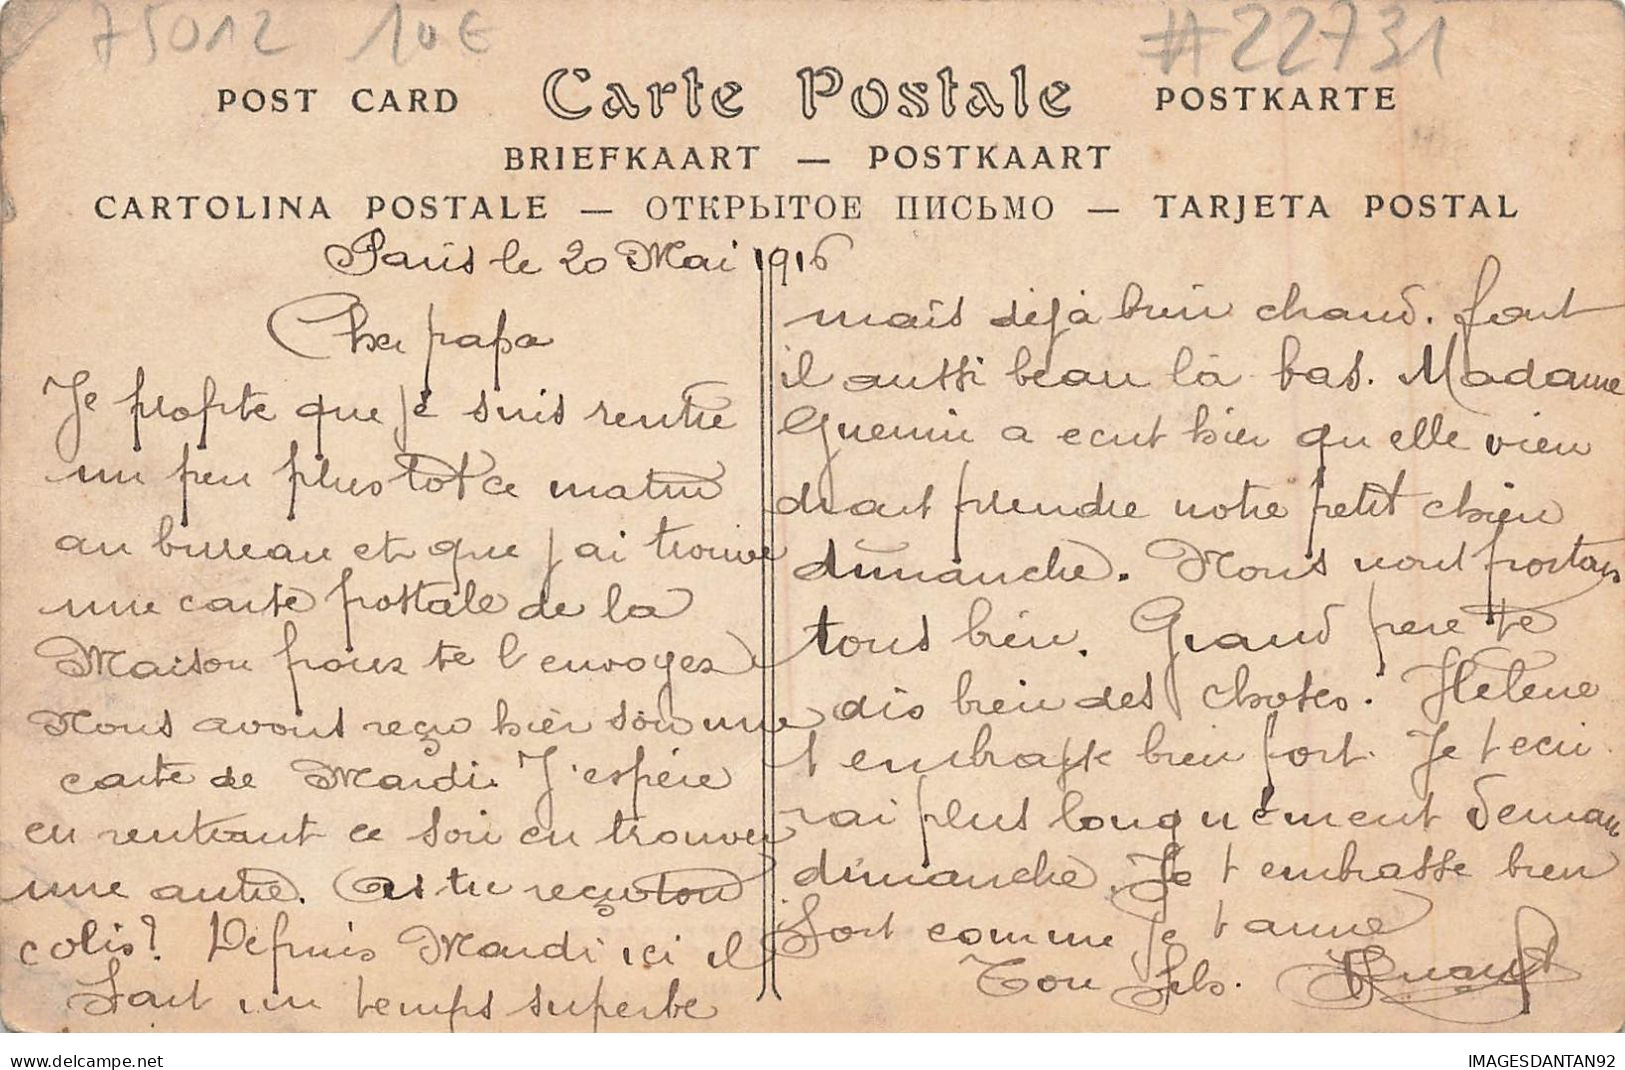 75012 10€ #22731
POST CARD Carte Postale POSTKARTE
BRIEFKAART — POSTKAART
CARTOLINA POSTALE — ОТКРЫТОЕ ПИСЬМО — TARJETA POSTAL
Paris le 20 Mai 1916
Cher papa
Je profite que je suis rentre
un peu plus tot ce matin
au bureau et que j ai trouve
une carte postale de la
Maison pour te l envoyer
Nous avons reçu hier soir une
carte de Mardi. J'espère
en rentrant ce soir en trouver
une autre. As tu reçu ton
colis? Depuis Mardi ici il
fait un temps superbe
mais déjà bien chaud. fait
il aussi beau là bas. Madame
Guenin a ecrit hier qu elle vien
drait prendre notre petit chien
dimanche. Nous nous portons
tous bien. Grand pere te
dis bien des choses. Helene
t embrasse bien fort. Je t ecri
rai plus longuement demain
dimanche. Je t embrasse bien
fort comme je t aime
Ton fils.
delcampe.net IMAGESDANTAN92